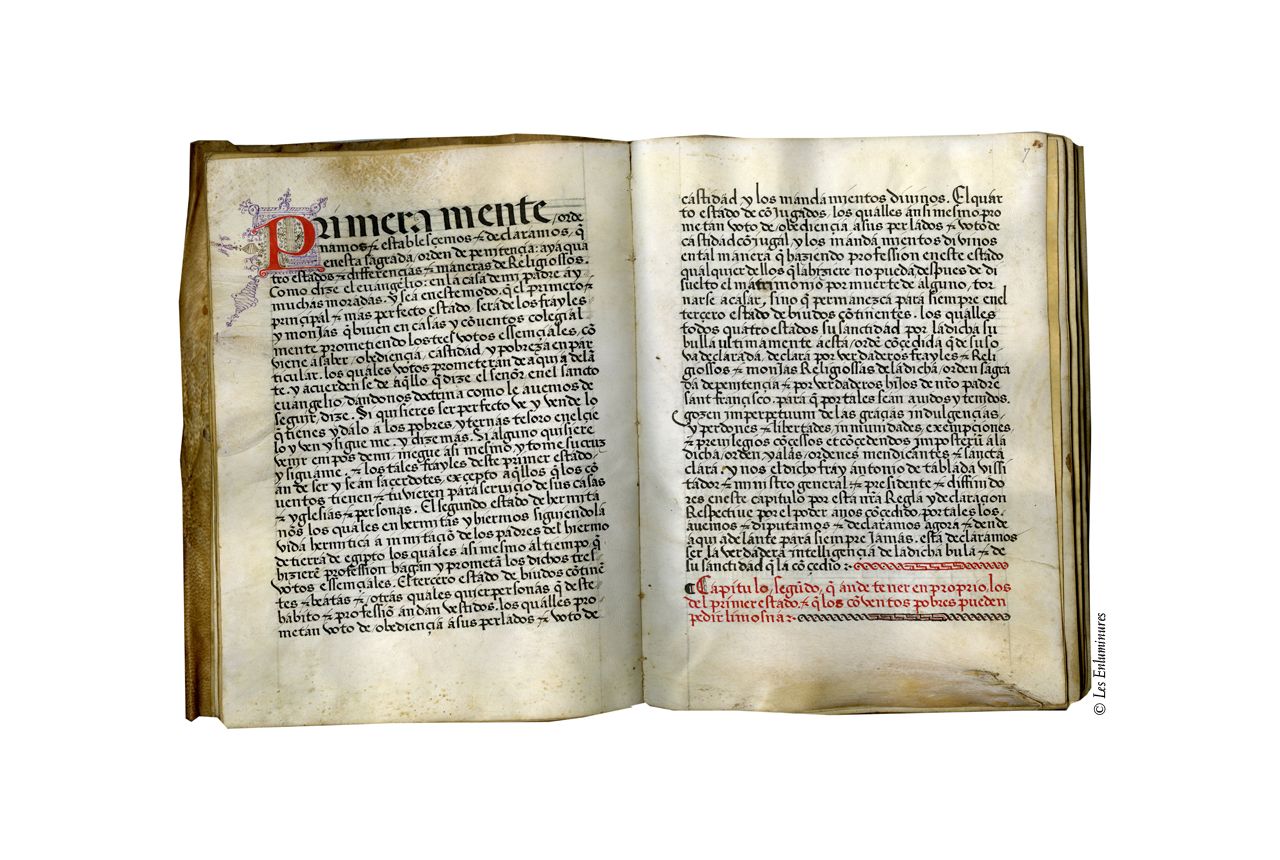 Primera mente / orde
namos ⁊ establesçemos ⁊ declaramos, q̃
enesta sagrada / orden de penitençia: aya qua
tro estados ⁊ differençias ⁊ maneras de Religiossos.
Como dize el evangelio: enla casa de mi padre ay
muchas moradas. Y sea eneste modo, q̃ el primero ⁊
prinçipal ⁊ mas perfecto estado, sera de los frayles
y monjas q̃ biuen en casas y cõventos colegial
mente prometiendo los tres votos essençiales, cõ
viene a saber / obediençia, castidad, y pobreza en par
ticular. los quales votos prometeran de aqui a delã
te. y acuerden se de aq̃llo q̃ dize el señor, en el sancto
evangelio, dando nos doctrina como le avemos de
seguir, dize. Si quisieres ser perfecto ve y vende lo
q̃ tienes y dalo a los pobres y ternas tesoro en el çie
lo y ven y sigue me. y dize mas. Si alguno quisiere
venir em pos de mi niegue asi mesmo y tome su cruz
y sigua me. ⁊ los tales frayles deste primer estado,
an de ser y sean saçerdotes, excepto aq̃llos q̃ los cõ
uentos tienen ⁊ tuvieren para serviçio de sus casas
⁊ yglesias ⁊ personas. El segundo estado de hermita
nos los quales en hermitas y hiermos siguiendo la
vida hermitica a immitaçiõ de los padres del hiermo
de tierra de egipto los quales asi mesmo al tiempo q̃
hizieren profession hagan y prometã los dichos tres
votos essençiales. El terçero estado de biudos cõtinẽ
tes ⁊ beatas ⁊ / otras quales quier personas q̃ deste
habito ⁊ professiõ andan vestidos, los qualles pro
metan voto de / obediençia a sus perlados ⁊ voto de
7
castidad y los mandamientos divinos. El quar
to estado de cõjugados, los qualles ansi mesmo pro
metan voto de obediençia a sus perlados ⁊ voto de
castidad cõjugal y los mandamientos divinos
en tal manera q̃ haziendo profession eneste estado
qualquier dellos q̃ la hiziere no pueda despues de di
suelto el matrimonio por muerte de alguno, tor
narse a casar, sino q̃ permanezca para siempre enel
terçero estado de biudos cõtinentes. los qualles
todos quatro estados su sanctidad por la dicha su
bulla ultimamente a esta / ordẽ cõçedida q̃ de suso
va declarada, declara por verdaderos frayles ⁊ Reli
giossos ⁊ monjas Religiossas de la dicha / orden sagra
da de penitençia ⁊ por verdaderos hijos de nr̃o padre
sant françisco. para q̃ por tales sean auidos y tenidos.
gozen imperpetuum de las graçias indulgençias,
y perdones ⁊ libertades, inmunidades, exempçiones
⁊ previlegios cõçessos et cõçedendos imposterũ a la
dicha / orden, y a las / ordenes mendicantes ⁊ sancta
clara. y nos el dicho fray antonio de tablada vissi
tador ⁊ ministro general ⁊ presidente ⁊ diffinido
res eneste capitulo por esta nr̃a Regla y declaraçion
Respective por el poder a nos cõçedido por tales los
auemos ⁊ diputamos ⁊ declaramos agora ⁊ dende
aqui adelante para siempre jamas. esta declaramos
ser la verdadera intelligençia de la dicha bula ⁊ de
su sanctidad q̃ la cõçedio
¶ Capitulo, segũdo, q̃ an de tener en proprio, los
del primer estado, ⁊ q̃ los cõventos pobres pueden
pedir limosna
© Les Enluminures